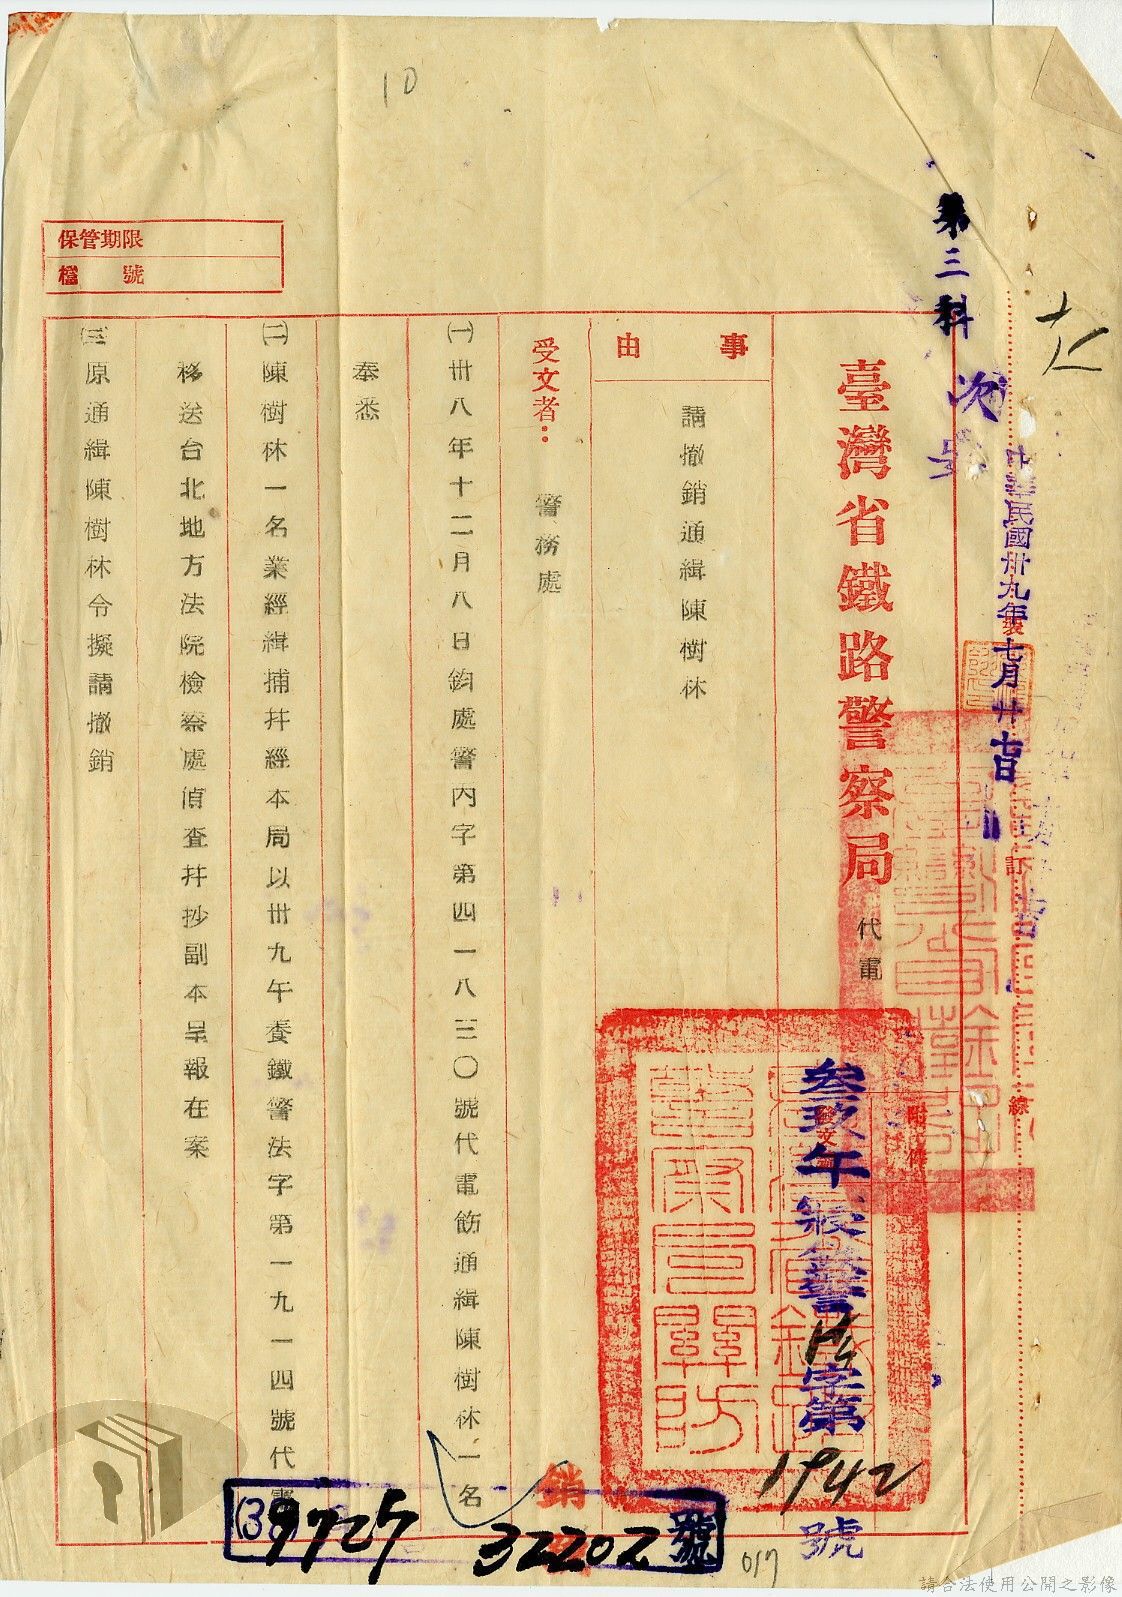 10
保管期限
檔 號
第三科
中華民國卅九年七月廿七日
臺灣省鐵路警察局
代電
附件
叁玖午 警 字第1942號
事由
請撤銷通緝陳樹林
受文者：
警務處
㈠卅八年十二月八日鈞處警內字第四一八三〇號代電飭通緝陳樹林一名
奉悉
㈡陳樹林一名業經緝捕幷經本局以卅九午養鐵警法字第一九一四號代電
移送台北地方法院檢察處偵查幷抄副本呈報在案
㈢原通緝陳樹林令擬請撤銷
訂
線
銷
32202號
017
請合法使用公開之影像